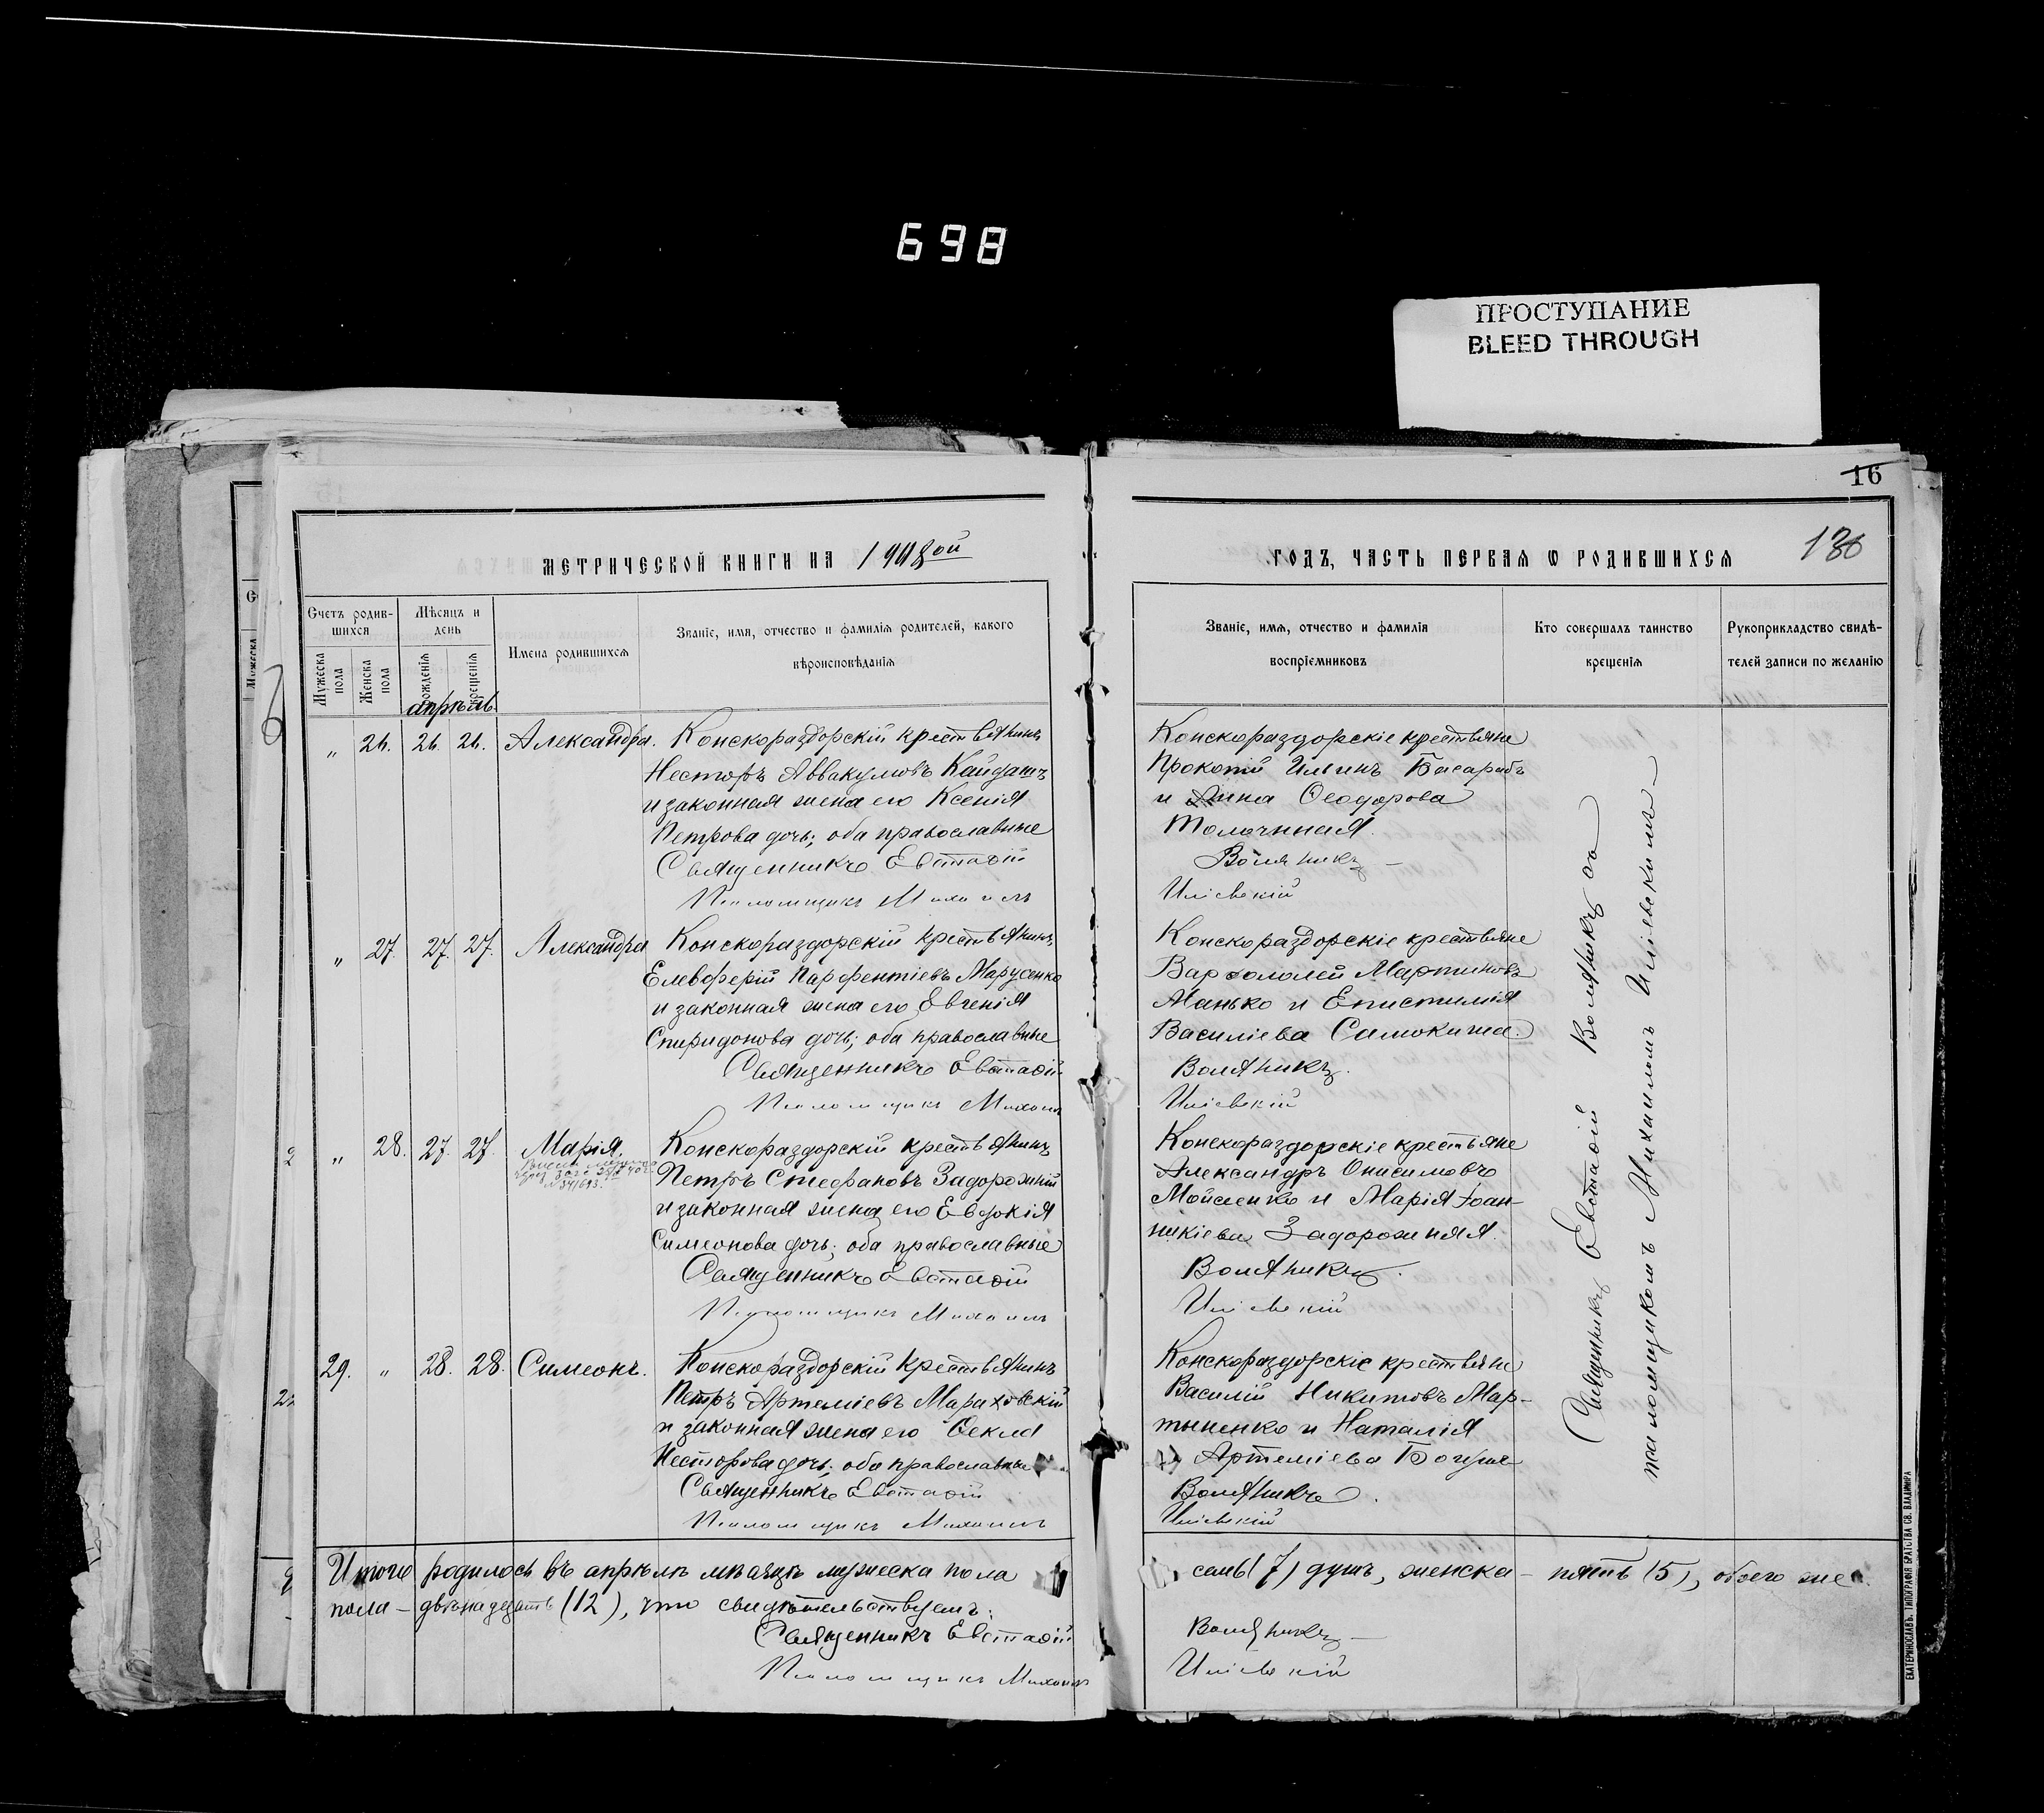 698
ПРОСТУПАНИЕ
BLEED THROUGH
16
МЕТРИЧЕСКОЙ КНИГИ НА 1908ой
ГОДЪ, ЧАСТЬ ПЕРВАЯ Ѡ РОДИВШИХСЯ
Счетъ родив-
шихся
Мѣсяцъ и
день
Мужеска
пола
Женска
пола
рожденія
крещенія
Имена родившихся
Званіе, имя, отчество и фамилія родителей, какого
вѣроисповѣданія
апрѣль
„ 26. 26. 26. Александра. Конскораздорскій крестьянинъ
Несторъ Аввакумовъ Кайдашъ
и законная жена его Ксенія
Петрова дочь; оба православные
Священникъ Евстафій
Псаломщикъ Михаилъ
„ 27. 27. 27. Александра Конскораздорскій крестьянинъ
Елевферій Парфентіевъ Марусенко
и законная жена его Евгенія
Спиридонова дочь; оба православные
Священникъ Евстафій
Псаломщикъ Михаилъ
„ 28. 27. 27. Марія. Конскораздорскій крестьянинъ
Петръ Стефановъ Задорожній
и законная жена его Евдокія
Симеонова дочь; оба православные
Священникъ Евстафій
Псаломщикъ Михаилъ
29. „ 28. 28. Симеонъ. Конскораздорскій крестьянинъ
Петръ Артеміевъ Мараховскій
и законная жена его Ѳекла
Несторова дочь; оба православные
Священникъ Евстафій
Псаломщикъ Михаилъ
Итого родилось въ апрѣлѣ мѣсяцѣ мужеска пола
пола – двѣнадцать (12), что свидѣтельствуемъ:
Священникъ Евстафій
Псаломщикъ Михаилъ
Званіе, имя, отчество и фамилія
воспріемниковъ
Кто совершалъ таинство
крещенія
Рукоприкладство свидѣ-
телей записи по желанію
Конскораздорскіе крестьяне
Прокопій Ильинъ Басарабъ
и Анна Ѳеодорова
Толочинная.
Воляникъ
Иліевскій
Конскораздорскіе крестьяне
Варѳоломей Мартиновъ
Манько и Епистимія
Василіева Самокиша.
Воляникъ.
Иліевскій
Конскораздорскіе крестьяне
Александръ Онисимовъ
Мойсеенко и Марія Іоан-
никіева Задорожняя.
Воляникъ.
Иліевскій
Конскораздорскіе крестьяне
Василій Никитовъ Мар-
тыненко и Наталія
Артеміева
Воляникъ.
Иліевскій
семь (7) душъ, женска – пять (5), обоего же
Воляникъ
Иліевскій
Священникъ Евстафій Воляникъ съ
псаломщикомъ Михаиломъ Иліевскимъ
ЕКАТЕРИНОСЛАВЪ. ТИПОГРАФІЯ БРАТСТВА СВ. ВЛАДИМІРА